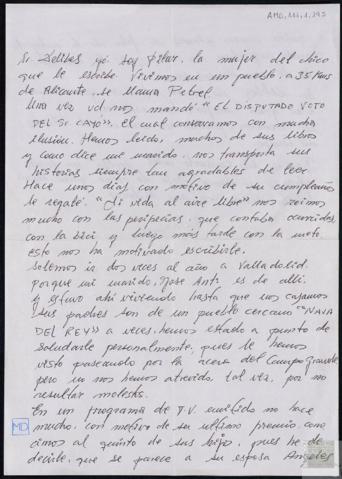 AMD, 111, 1, 393
Sr Delibes yo soy Pilar, la mujer del chico
que le escribe. Vivimos en un pueblo a 35 Kms
de Alicante. Se llama Petrel.
Una vez vd nos mandó "EL DISPUTADO VOTO
DEL Sr CAYO", el cual conservamos con mucha
ilusión. Hemos leido, muchos de sus libros
y como dice mi marido, nos transporta sus
historias siempre tan agradables de leer
Hace unos dias con motivo de su cumpleaños
le regalé. "Mi vida al aire libre" nos reimos
mucho con las peripecias, que contaba ocurridas
con la bici y luego más tarde con la moto
esto nos ha motivado escribirle.
Solemos ir dos veces al año a Valladolid.
Porque mi marido, Jose Ant. es de alli.
y estuvo ahi viviendo hasta que nos casamos
sus padres son de un pueblo cercano "NAVA
DEL REY" a veces, hemos estado a punto de
saludarle personalmente, pues le hemos
visto paseando por la acera del Campo Grande
pero no nos hemos atrevido, tal vez, por no
resultar molesto.
En un programa de T.V. emitido no hace
mucho, con motivo de su ultimo premio, cono
cimos al quinto de sus hijos, pues he de
decirle, que se parece a su esposa Angeles
MD